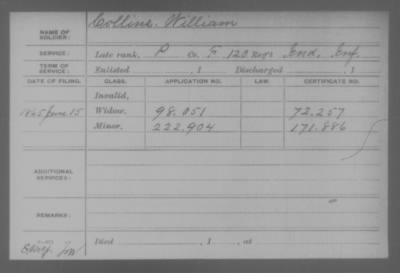 NAME OF SOLDIER: Collins, William
SERVICE: Late rank, P Co. F 120 Reg't Ind. Inf.
TERM OF SERVICE: Enlisted , 1 Discharged , 1
DATE OF FILING. CLASS. APPLICATION NO. LAW. CERTIFICATE NO.
Invalid,
1865 June 15 Widow, 98.051 72.257
Minor, 222.904 171.886
ADDITIONAL SERVICES:
REMARKS:
Died , 1 , at